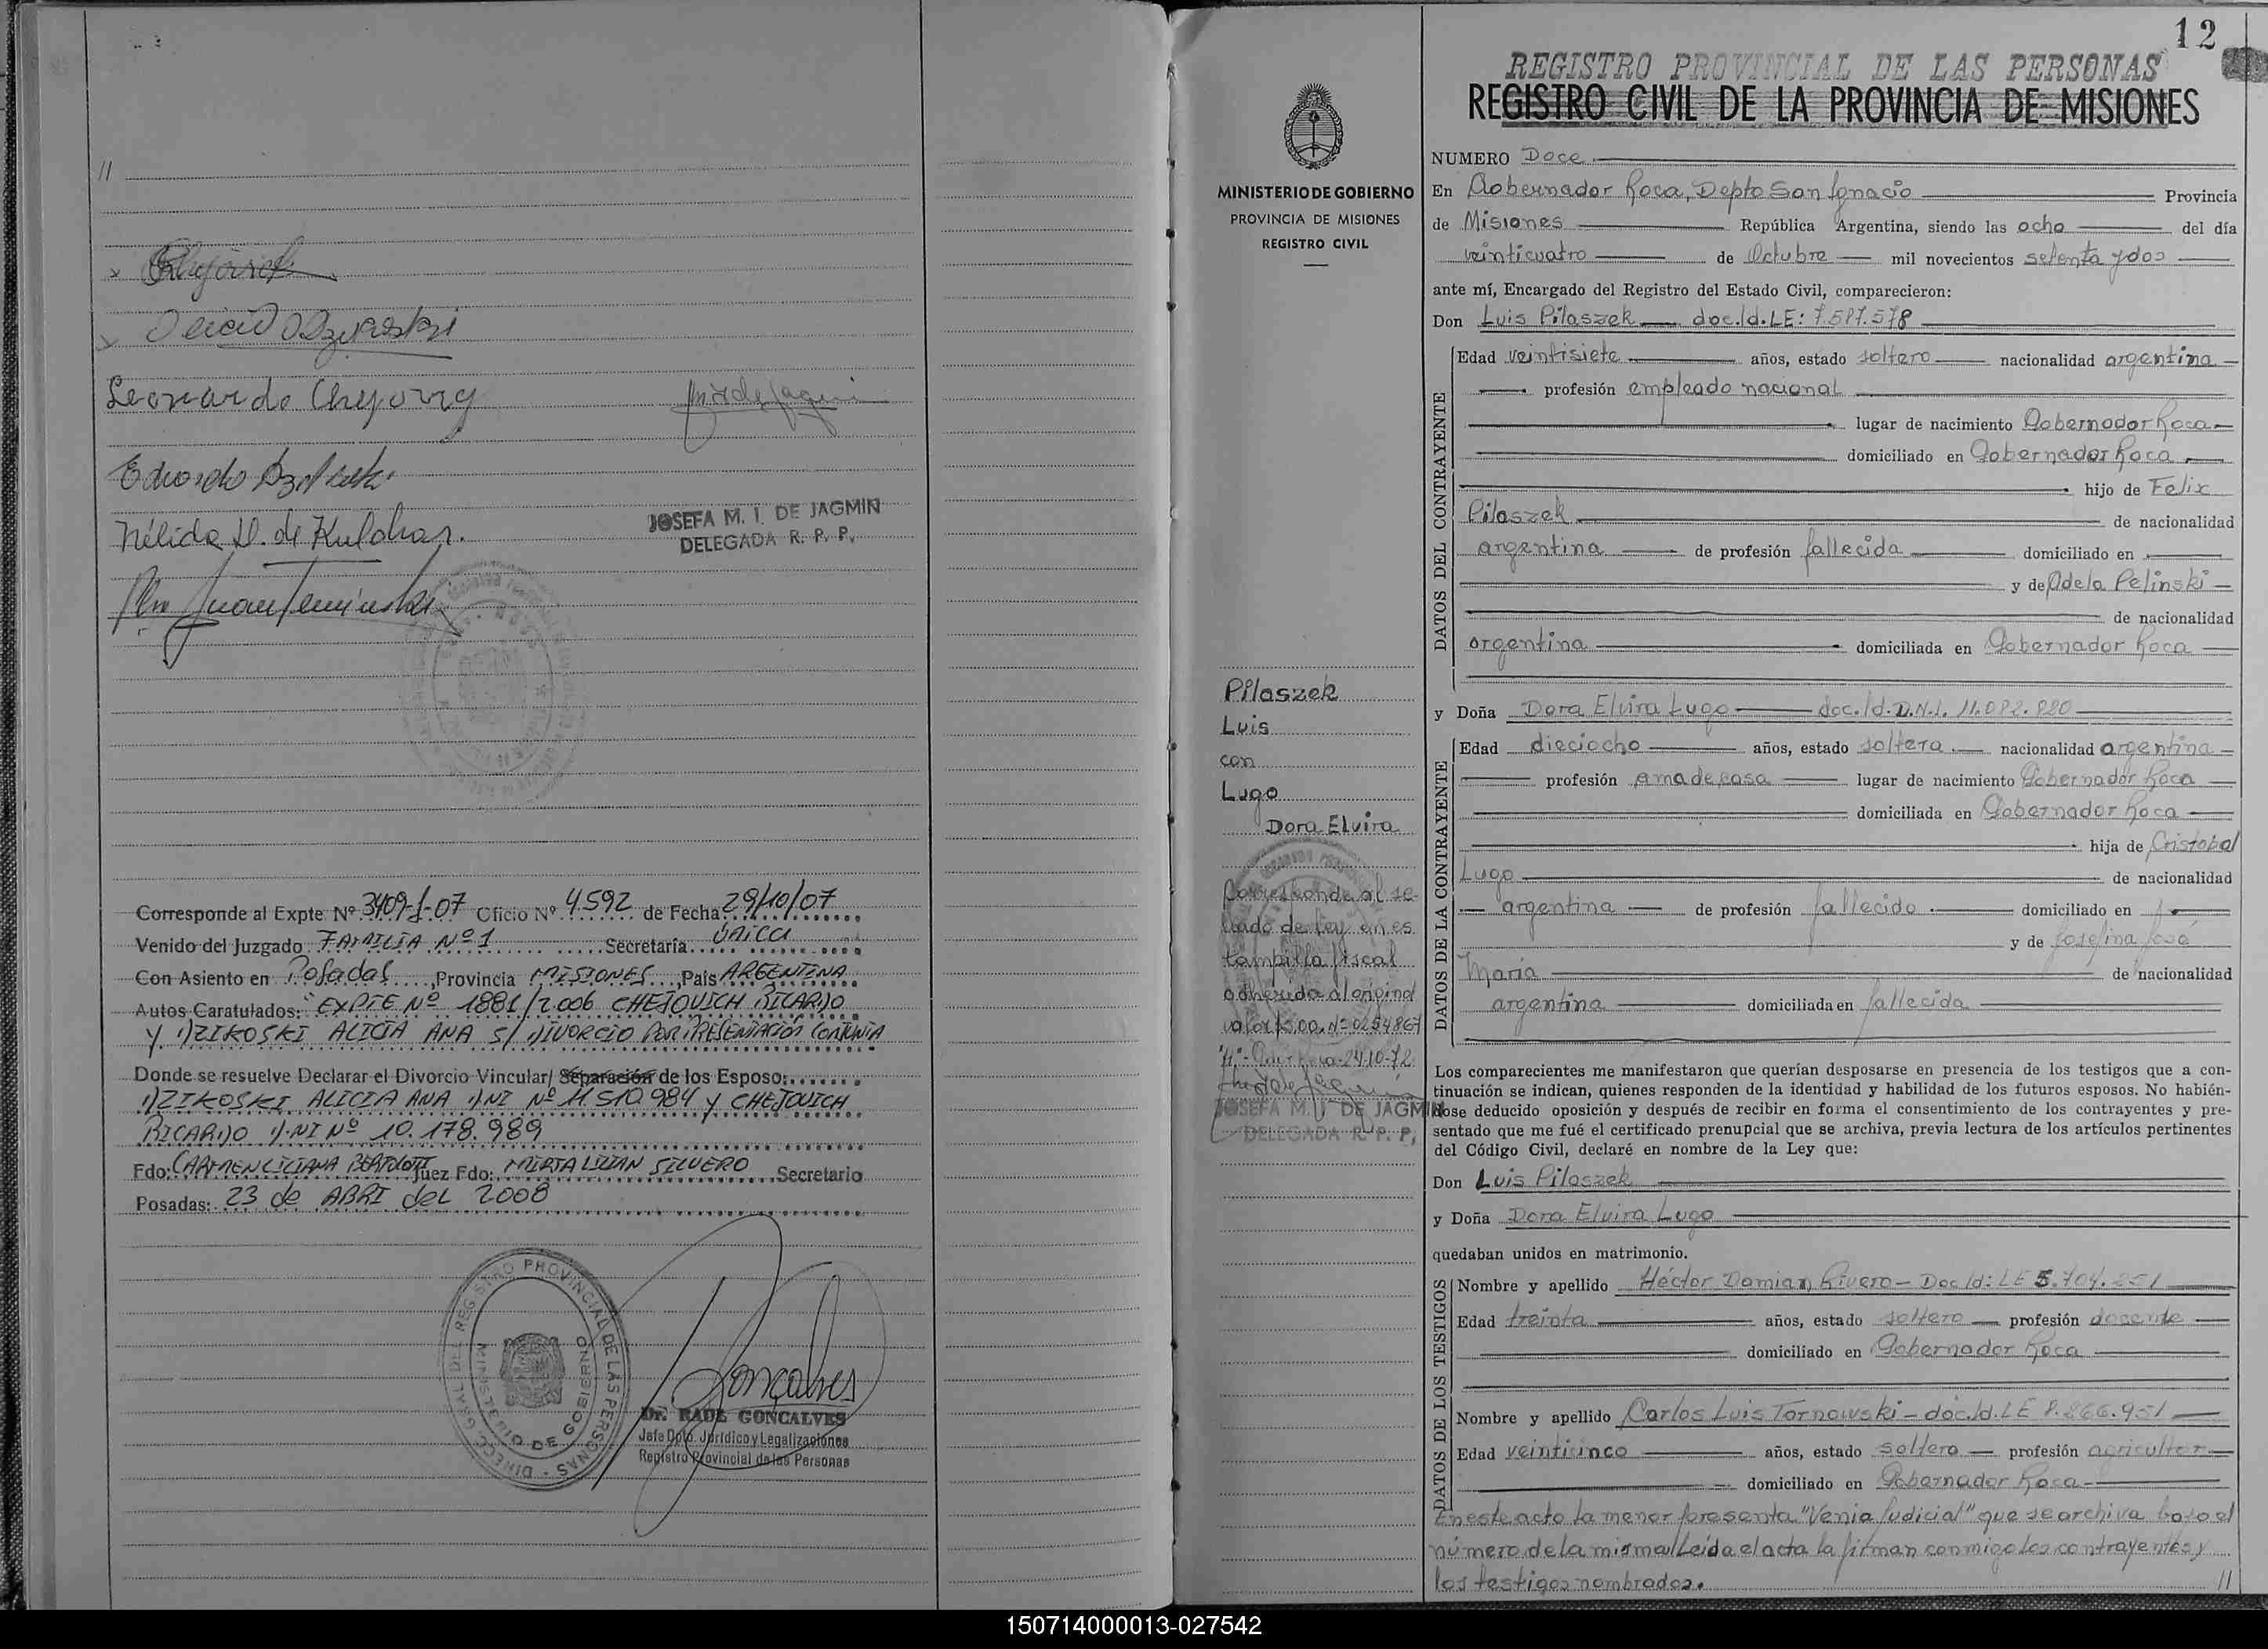 //
Leonardo Chejovig
Nélida D. de Kulchar.
JOSEFA M. I. DE JAGMIN
DELEGADA R. P. P.
Corresponde al Expte. Nº 3409-J-07 Oficio Nº 4592 de Fecha 29/10/07
Venido del Juzgado FAMILIA Nº 1 Secretaría
Con Asiento en Posadas, Provincia MISIONES, País ARGENTINA
Autos Caratulados: "EXPTE Nº 1881/2006 CHEJOVICH RICARDO
Y DZIKOSKI ALICIA ANA S/ DIVORCIO POR PRESENTACIÓN CONJUNTA
Donde se resuelve Declarar el Divorcio Vincular/ Separación de los Esposo:
DZIKOSKI ALICIA ANA DNI Nº 11.510.984 Y CHEJOVICH
RICARDO D.NI Nº 10.178.989
Fdo: CARMEN LILIANA BERTOLOTTI Juez Fdo: MIRTA LILIAN SILVERO Secretario
Posadas: 23 de ABRI del 2008
REGISTRO PROVINCIAL DE LAS PERSONAS
MINISTERIO DE GOBIERNO
Dr. RAUL GONCALVES
Jefe Dpto. Jurídico y Legalizaciones
Registro Provincial de las Personas
12
REGISTRO PROVINCIAL DE LAS PERSONAS
REGISTRO CIVIL DE LA PROVINCIA DE MISIONES
MINISTERIO DE GOBIERNO
PROVINCIA DE MISIONES
REGISTRO CIVIL
Pilaszek
Luis
con
Lugo
Dora Elvira
Corresponde al se-
llado de ley en es
tampilla fiscal
adherida al original
JOSEFA M. I. DE JAGMIN
DELEGADA R. P. P.
NUMERO Doce
En Gobernador Roca, Depto San Ignacio Provincia
de Misiones República Argentina, siendo las ocho del día
veinticuatro de Octubre mil novecientos setenta y dos
ante mí, Encargado del Registro del Estado Civil, comparecieron:
Don Luis Pilaszek doc.Id.LE: 7.587.578
DATOS DEL CONTRAYENTE
Edad veintisiete años, estado soltero nacionalidad argentina
profesión empleado nacional
lugar de nacimiento Gobernador Roca
domiciliado en Gobernador Roca
hijo de Felix
Pilaszek de nacionalidad
argentina de profesión fallecida domiciliado en
y de Adela Pelinski
de nacionalidad
argentina domiciliada en Gobernador Roca
y Doña Dora Elvira Lugo doc.Id.D.N.I. 11.082.820
DATOS DE LA CONTRAYENTE
Edad dieciocho años, estado soltera nacionalidad argentina
profesión ama de casa lugar de nacimiento Gobernador Roca
domiciliada en Gobernador Roca
hija de Cristobal
Lugo de nacionalidad
argentina de profesión fallecido domiciliado en
y de Josefina José
Maria de nacionalidad
argentina domiciliada en fallecida
Los comparecientes me manifestaron que querían desposarse en presencia de los testigos que a con-
tinuación se indican, quienes responden de la identidad y habilidad de los futuros esposos. No habién-
dose deducido oposición y después de recibir en forma el consentimiento de los contrayentes y pre-
sentado que me fué el certificado prenupcial que se archiva, previa lectura de los artículos pertinentes
del Código Civil, declaré en nombre de la Ley que:
Don Luis Pilaszek
y Doña Dora Elvira Lugo
quedaban unidos en matrimonio.
DATOS DE LOS TESTIGOS
Nombre y apellido Héctor Damian Rivero - Doc Id: LE 5.704.251
Edad treinta años, estado soltero profesión docente
domiciliado en Gobernador Roca
Nombre y apellido Carlos Luis Tornowski - doc.Id.LE 8.266.951
Edad veinticinco años, estado soltero profesión agricultor
domiciliado en Gobernador Roca
En este acto la menor presenta "Venia Judicial" que se archiva bajo el
número de la misma. Leída el acta la firman conmigo los contrayentes y
los testigos nombrados. //
150714000013-027542